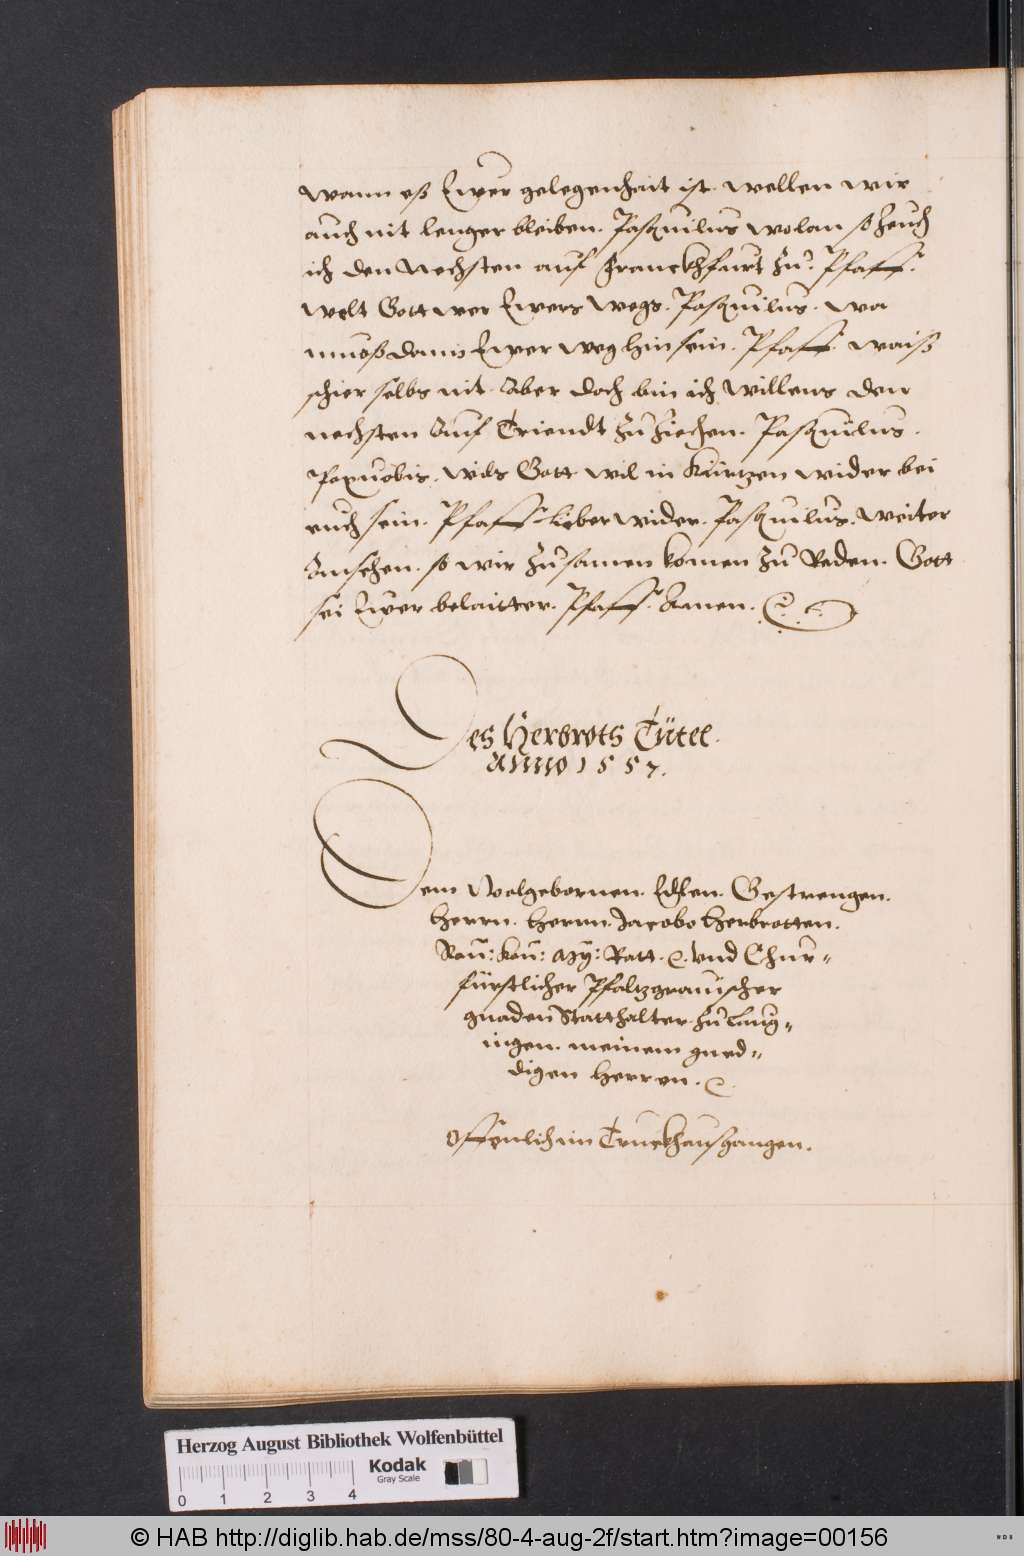 wann eß Ewer gelegenhait ist. wellen wir
auch nit lenger bleiben. Pasquilus wolan so zeuch
ich den Nechsten auf Franckhfurt zu. Pfaff.
Welt Gott wer Ewers wegs. Pasquilus. wa
muoß dann Ewer weg hin sein. Pfaff. waiß
schier selbs nit. Aber doch bin ich Willens den
nechsten Auf Triendt zu ziechen. Pasquilus.
Paxuobis. wils Gott wil in Kurtzen wider bei
euch sein. Pfaff. Lieber wider. Pasquilus. Weiter
Ansehen. so wir zusamen komen zu Reden. Gott
sei Ewer belaitter. Pfaff. Amen.
Des Herbrots Tütel.
Anno 1557.
Dem Wolgebornen. Edlen. Gestrengen.
Herrn. Herrn. Jacobo Herbrotten.
Röm: Kön: May: Ratt. etc. Vnd Chur=
fürstlicher Pfaltzgrauischer
gnaden Statthalter zu Laug=
ingen. meinem gned=
digen Herren. etc.
Offenlich im Truckh aushgangen.
Herzog August Bibliothek Wolfenbüttel
Kodak
Gray Scale
0 1 2 3 4
© HAB http://diglib.hab.de/mss/80-4-aug-2f/start.htm?image=00156